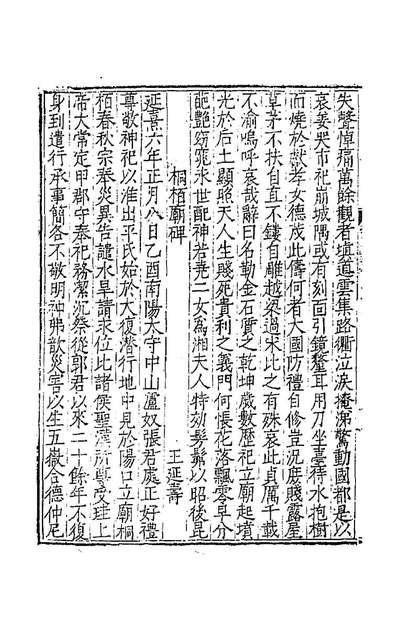 失聲悼痛萬餘觀者塡道雲集路衢泣淚掩涕驚動國都是以
哀姜哭市杞崩城隅或有刻面引鏡剺耳用刀坐臺待水抱樹
而燒於戲孝女德茂此儔何者大國防禮自修豈況庶賤露屋
草茅不扶自直不鏤自雕越梁過宋比之有殊哀此貞厲千載
不渝嗚呼哀哉辭曰名勒金石質之乾坤歲數歷祀立廟起墳
光於后土顯照天人生賤死貴利之義門何悵花落飄零早分
葩艷窈窕永世配神若堯二女為湘夫人特効髣髴以昭後昆
桐栢廟碑 王延壽
延熹六年正月八日乙酉南陽太守中山盧奴張君處正好禮
尊敬神祀以淮出平氏始於大復潛行地中見於陽口立廟桐
栢春秋宗奉災異告譴水旱請求位比諸侯聖漢所尊受珪上
帝大常定甲郡守奉祀務潔沉祭從郭君以來二十餘年不復
身到遣行承事簡各不敬明神弗歆災害以生五嶽合德仲尼